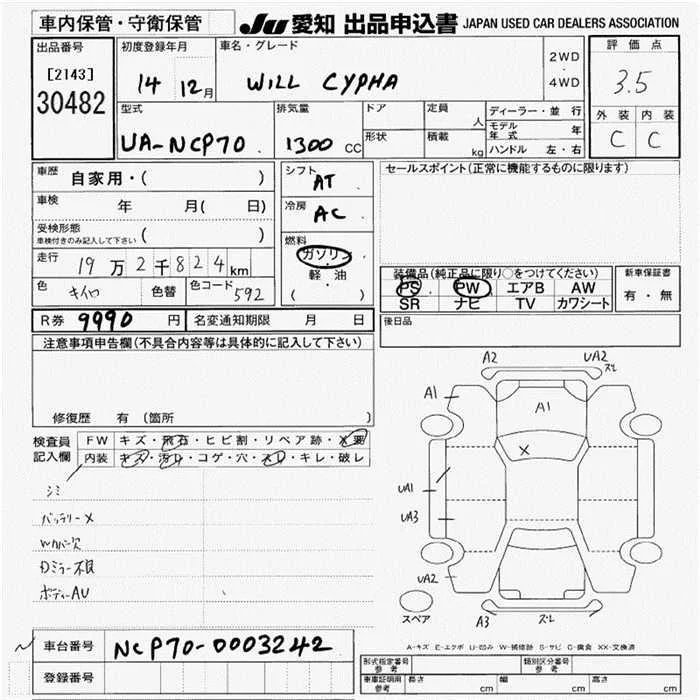 車内保管・守衛保管
JU 愛知 出品申込書 JAPAN USED CAR DEALERS ASSOCIATION
出品番号
[2143]
30482
初度登録年月
14 12月
車名・グレード
WILL CYPHA
2WD
・
4WD
評価点
3.5
外装 内装
C C
型式
UA-NCP70
排気量
1300 CC
ドア
定員
人
形状
積載
kg
ディーラー・並行
モデル年式 年
ハンドル 左・右
車歴
自家用・( )
車検
年 月( 日)
受検形態
車検付きのみ記入して下さい ( )
走行
19万2千824km
色 キイロ
色替
色コード 592
シフト
AT
冷房
AC
燃料
ガソリン
・
軽油
( )
セールスポイント(正常に機能するものに限ります)
装備品(純正品に限り○をつけてください)
PS PW エアB AW
SR ナビ TV カワシート
新車保証書
有・無
R券 9990 円
名変通知期限 月 日
後日品
注意事項申告欄(不具合内容等は具体的に記入して下さい)
修復歴 有 (箇所 )
検査員
記入欄
FW キズ・飛石・ヒビ割・リペア跡・X要
内装 キズ・汚レ・コゲ・穴・スレ・キレ・破レ
シミ
バッテリーX
Wカバー欠
Dミラー不良
ボディーAU
A2 UA2 ズレ
A1
A1
X
UA1
UA3
UA2
スペア
A3 ズレ
A-キズ E-エクボ U-凹み W-補修跡 S-サビ C-腐食 XX-交換済
車台番号 NCP70-0003242
登録番号
形式指定番号
参考
類別区分番号
参考
車庫証明用
参考
長さ cm
幅 cm
高さ cm